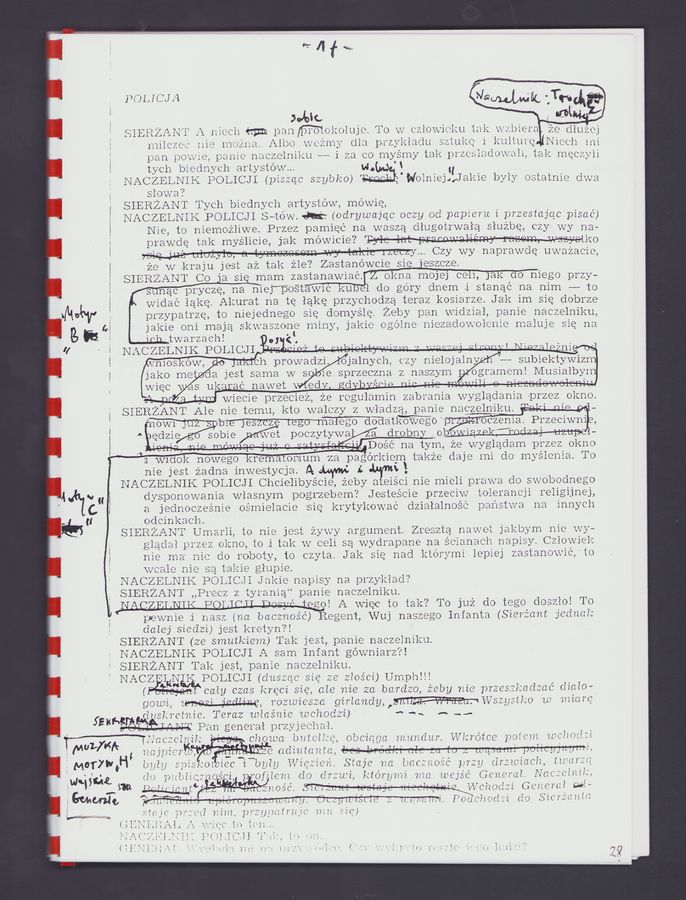 - 17 -
POLICJA
Naczelnik: Trochę
wolniej
sobie
SIERŻANT A niech tam pan protokołuje. To w człowieku tak wzbiera, że dłużej
milczeć nie można. Albo weźmy dla przykładu sztukę i kulturę. Niech mi
pan powie, panie naczelniku — i za co myśmy tak prześladowali, tak męczyli
tych biednych artystów...
Wolniej!
NACZELNIK POLICJI (pisząc szybko) Trochę wolniej. Jakie były ostatnie dwa
słowa?
SIERŻANT Tych biednych artystów, mówię,
NACZELNIK POLICJI S-tów. (odrywając oczy od papieru i przestając pisać)
Nie, to niemożliwe. Przez pamięć na waszą długotrwałą służbę, czy wy na-
prawdę tak myślicie, jak mówicie? Tyle lat pracowaliśmy razem, wszystko
się już ułożyło, a tymczasem wy takie rzeczy... Czy wy naprawdę uważacie,
że w kraju jest aż tak źle? Zastanówcie się jeszcze.
SIERŻANT Co ja się mam zastanawiać. Z okna mojej celi, jak do niego przy-
sunąć pryczę, na niej postawić kubeł do góry dnem i stanąć na nim — to
widać łąkę. Akurat na tę łąkę przychodzą teraz kosiarze. Jak im się dobrze
przypatrzę, to niejednego się domyślę. Żeby pan widział, panie naczelniku,
jakie oni mają skwaszone miny, jakie ogólne niezadowolenie maluje się na
ich twarzach!
Motyw
"B"
Dosyć!
NACZELNIK POLICJI Przecież to subiektywizm z waszej strony! Niezależnie od
wniosków, do jakich prowadzi, lojalnych, czy nielojalnych — subiektywizm
jako metoda jest sama w sobie sprzeczna z naszym programem! Musiałbym
więc was ukarać nawet wtedy, gdybyście nic nie mówili o niezadowoleniu.
A poza tym wiecie przecież, że regulamin zabrania wyglądania przez okno.
SIERŻANT Ale nie temu, kto walczy z władzą, panie naczelniku. Taki nie od-
mówi już sobie jeszcze tego małego dodatkowego przekroczenia. Przeciwnie,
będzie go sobie nawet poczytywał za drobny obowiązek, rodzaj uzupeł-
nienia, nie mówiąc już o satysfakcji. Dość na tym, że wyglądam przez okno
i widok nowego krematorium za pagórkiem także daje mi do myślenia. To
nie jest żadna inwestycja. A dymi i dymi!
NACZELNIK POLICJI Chcielibyście, żeby ateiści nie mieli prawa do swobodnego
dysponowania własnym pogrzebem? Jesteście przeciw tolerancji religijnej,
a jednocześnie ośmielacie się krytykować działalność państwa na innych
odcinkach.
Motyw
"C"
SIERŻANT Umarli, to nie jest żywy argument. Zresztą nawet jakbym nie wy-
glądał przez okno, to i tak w celi są wydrapane na ścianach napisy. Człowiek
nie ma nic do roboty, to czyta. Jak się nad którymi lepiej zastanowić, to
wcale nie są takie głupie.
NACZELNIK POLICJI Jakie napisy na przykład?
SIERŻANT „Precz z tyranią" panie naczelniku.
NACZELNIK POLICJI Dosyć tego! A więc to tak? To już do tego doszło! To
pewnie i nasz (na baczność) Regent, Wuj naszego Infanta (Sierżant jednak
dalej siedzi) jest kretyn?!
SIERŻANT (ze smutkiem) Tak jest, panie naczelniku.
NACZELNIK POLICJI A sam Infant gówniarz?!
SIERŻANT Tak jest, panie naczelniku.
NACZELNIK POLICJI (dusząc się ze złości) Umph!!!
Sekretarka
(Policjant cały czas kręci się, ale nie za bardzo, żeby nie przeszkadzać dialo-
gowi, wnosi jedlinę, rozwiesza girlandy, Wszystko w miarę
dyskretnie. Teraz właśnie wchodzi)
SEKRETARKA
POLICJANT Pan generał przyjechał.
(Naczelnik chowa butelkę, obciąga mundur. Wkrótce potem wchodzi
najpierw adiutanta, bez bródki ale za to z wąsami policyjnymi,
były spiskowiec i były Więzień. Staje na baczność przy drzwiach, twarzą
do publiczności, profilem do drzwi, którymi ma wejść Generał. Naczelnik,
Sekretarka
Policjant też na baczność. Sierżant wstaje niechętnie. Wchodzi Generał od-
powiednio wpióropuszowany. Oczywiście z wąsami. Podchodzi do Sierżanta
staje przed nim, przypatruje mu się)
MUZYKA
MOTYW „H"
Wejście
Generała
GENERAŁ A więc to ten...
NACZELNIK POLICJI Tak, to on.
GENERAŁ Wygląda mi na przywódcę. Czy wykryto resztę jego ludzi?
28